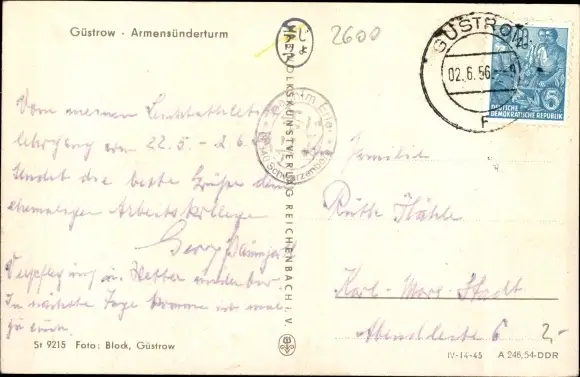 Güstrow - Armensünderturm
2600
GÜSTROW
02.6.56
DEUTSCHE
DEMOKRATISCHE REPUBLIK
5
VOLKSKUNSTVERLAG REICHENBACH i. V.
Vom meinen
lehrgang vom 22.5. - 2.6.
sendet die beste Grüße dem
ehemaligen Arbeitskollege
Georg
Verpflegung u. Wetter wunderbar.
In nächste Tage komme ich mal
zu euch.
Familie
Ruth
Karl-Marx-Stadt
6
2,-
St 9215 Foto: Block, Güstrow
IV-14-45 A 246,54-DDR